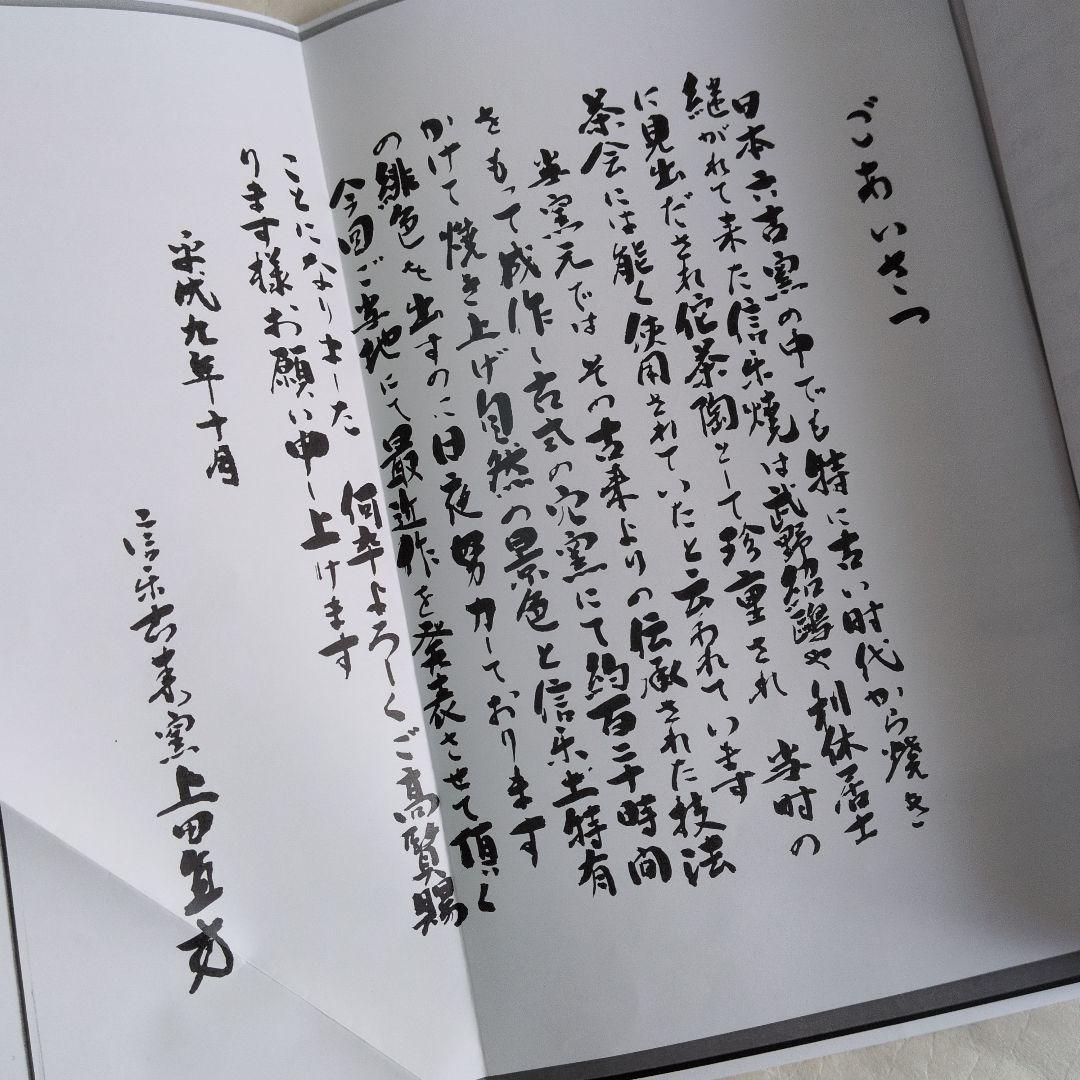 ごあいさつ
日本六古窯の中でも特に古い時代から焼き
継がれて来た信楽焼は武野紹鷗や利休居士
に見出だされ侘茶陶として珍重され 当時の
茶会には能く使用されていたと云われています
当窯元では その古来よりの伝承された技法
をもって成作し古式の穴窯にて約百二十時間
かけて焼き上げ自然の景色と信楽土特有
の緋色を出すのに日夜努力しております
今回ご当地にて最近作を発表させて頂く
ことになりました 何卒よろしくご高賢賜
ります様お願い申し上げます
平成九年十月
信楽古来窯上田直方